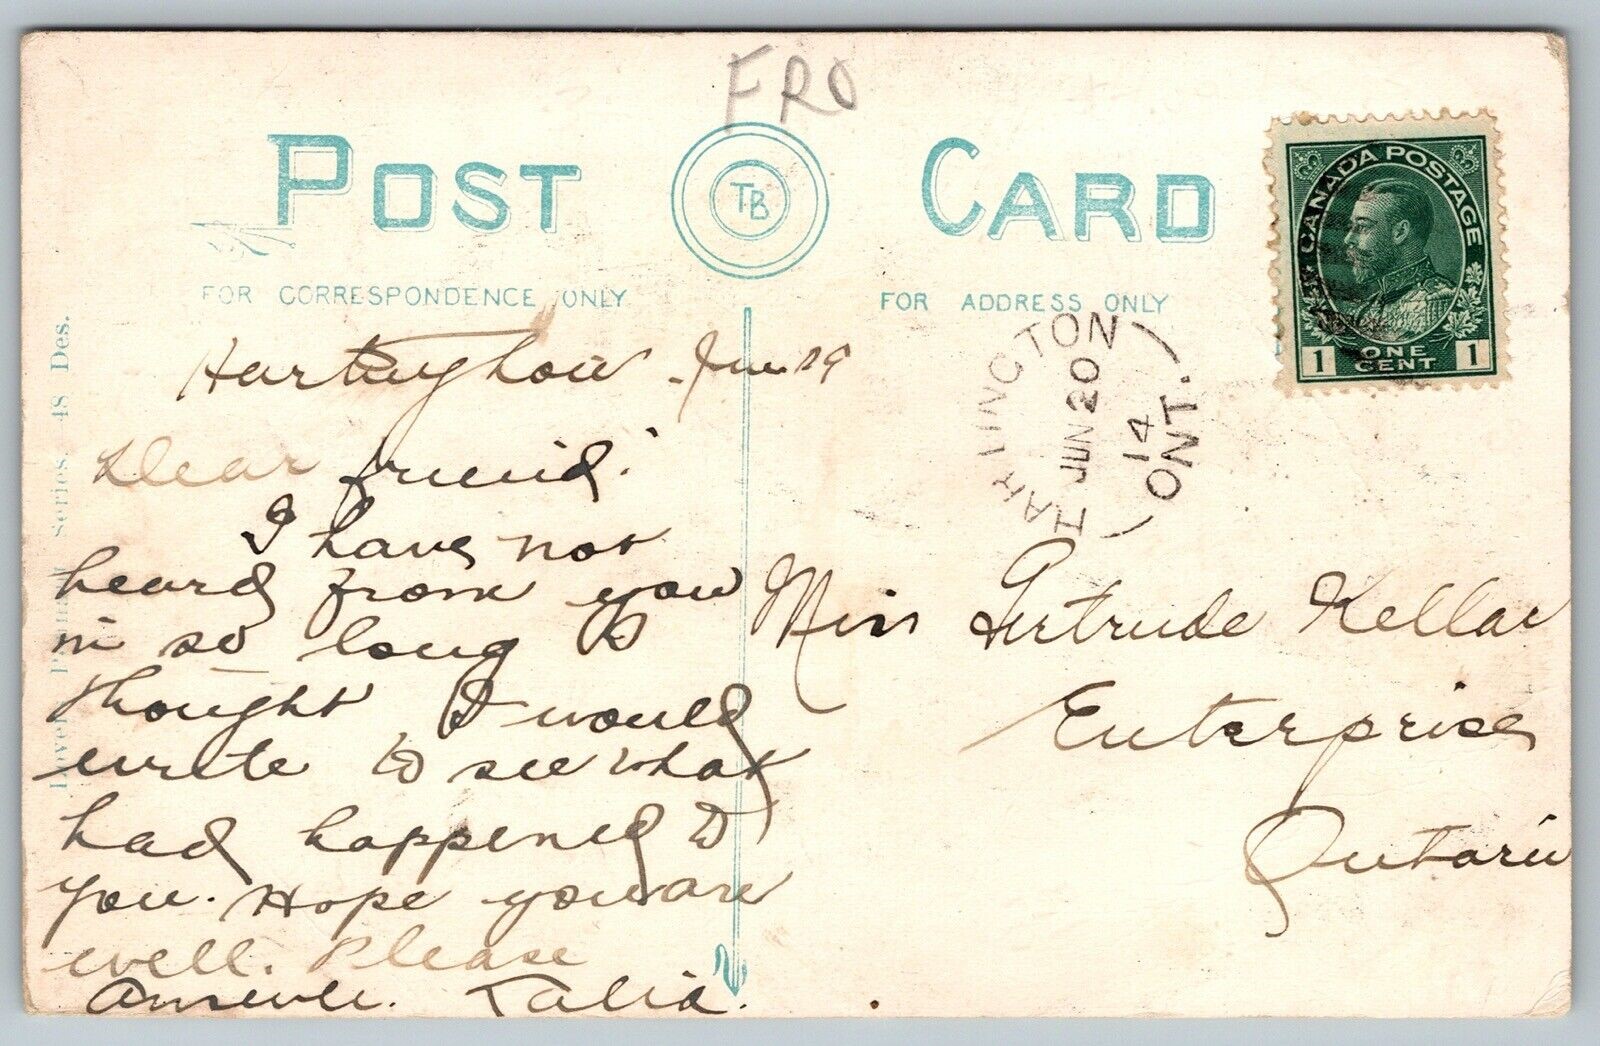 FRO
POST TB CARD
FOR CORRESPONDENCE ONLY
FOR ADDRESS ONLY
CANADA POSTAGE
1 ONE CENT 1
TARRINGTON
JUN 20
14
ONT.
June 19
Dear friend.
I have not
heard from you
in so long I
thought I would
write to see what
had happened to
you. Hope you are
well. Please
Answer.
Miss Gertrude Kellar
Enterprise
Ontario
series. 48 Des.